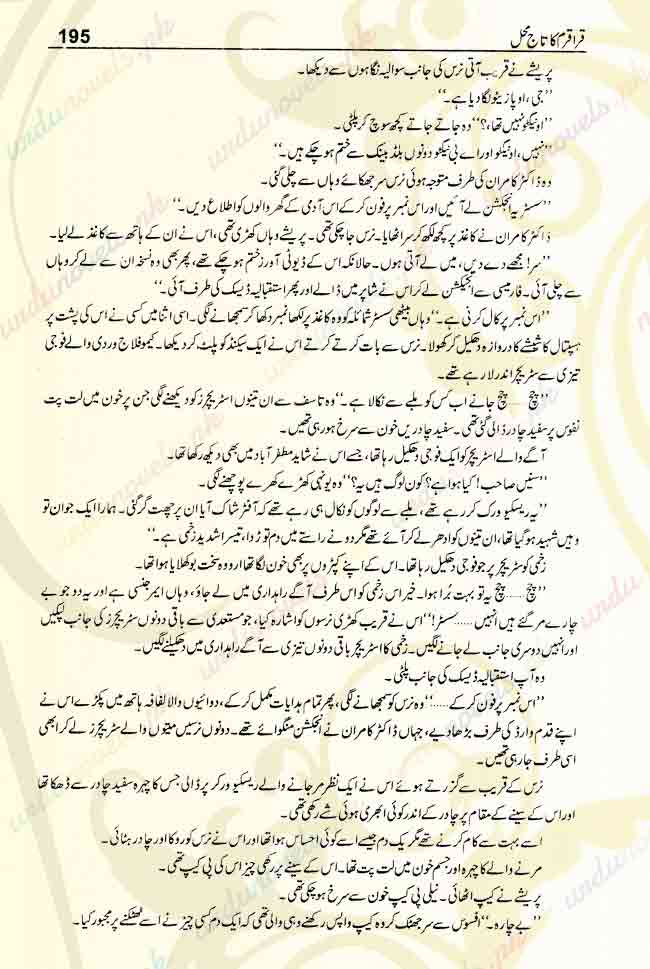 195 قراقرم کا تاج محل
پریشے نے قریب آتی نرس کی جانب سوالیہ نگاہوں سے دیکھا۔
”جی، او پازیٹو لگا دیا ہے۔“
”اونیگٹو نہیں تھا،؟“ وہ جاتے جاتے کچھ سوچ کر پلٹی۔
”نہیں، اونیگٹو اور اے بی نیگٹو دونوں بلڈ بینک سے ختم ہو چکے ہیں۔“
وہ ڈاکٹر کامران کی طرف متوجہ ہوئی نرس سر جھکائے وہاں سے چلی گئی۔
”سسٹر یہ انجکشن لے آئیں اور اس نمبر پر فون کر کے اس آدمی کے گھر والوں کو اطلاع دیں۔“
ڈاکٹر کامران نے کاغذ پر کچھ لکھ کر سر اٹھایا۔ نرس جا چکی تھی۔ پریشے وہاں کھڑی تھی، اس نے ان کے ہاتھ سے کاغذ لے لیا۔
”سر! مجھے دے دیں، میں لے آتی ہوں۔ حالانکہ اس کے ڈیوٹی آورز ختم ہو چکے تھے، پھر بھی وہ نسخہ ان سے لے کر وہاں
سے چلی آئی۔ فارمیسی سے انجیکشن لے کر اس نے شاپر میں ڈالے اور پھر استقبالیہ ڈیسک کی طرف آئی۔“
”اس نمبر پر کال کرنی ہے۔“ وہاں بیٹھی سسٹر شمائلہ کو وہ کاغذ پر لکھا نمبر دکھا کر سمجھانے لگی۔ اسی اثنا میں کسی نے اس کی پشت پر
ہسپتال کا شیشے کا دروازہ دھکیل کر کھولا۔ نرس سے بات کرتے کرتے اس نے ایک سیکنڈ کو پلٹ کر دیکھا۔ کیموفلاج وردی والے فوجی
تیزی سے سٹریچر اندر لا رہے تھے۔
”چچ چچ جانے اب کس کو ملبے سے نکالا ہے۔“ وہ تاسف سے ان تینوں اسٹریچرز کو دیکھنے لگی جن پر خون میں لت پت
نفوس پر سفید چادر ڈالی گئی تھی۔ سفید چادریں خون سے سرخ ہو رہی تھیں۔
آگے والے اسٹریچر کو ایک فوجی دھکیل رہا تھا، جسے اس نے شاید مظفر آباد میں بھی دیکھ رکھا تھا۔
”سنیں صاحب! کیا ہوا ہے؟ کون لوگ ہیں یہ؟“ وہ یونہی کھڑے کھڑے پوچھنے لگی۔
”یہ ریسکیو ورک کر رہے تھے، ملبے سے لوگوں کو نکال ہی رہے تھے کہ آفٹر شاک آیا ان پر چھت گر گئی۔ ہمارا ایک جوان تو
وہیں شہید ہو گیا تھا، ان تینوں کو ادھر لے کر آئے تھے مگر دو نے راستے میں دم توڑ دا، تیسرا شدید زخمی ہے۔“
زخمی کو سٹریچر پر جو فوجی دھکیل رہا تھا۔ اس کے اپنے کپڑوں پر بھی خون لگا تھا اور وہ سخت بوکھلایا ہوا تھا۔
”چچ..... چچ یہ تو بہت بُرا ہوا۔ خیر اس زخمی کو اس طرف آگے راہداری میں لے جاؤ، وہاں ایمرجنسی ہے اور یہ دو جو بے
چارے مر گئے ہیں انہیں ..... سسٹر!“ اس نے قریب کھڑی نرسوں کو اشارہ کیا، جو مستعدی سے باقی دونوں سٹریچرز کی جانب لپکیں
اور انہیں دوسری جانب لے جانے لگیں۔ زخمی کا اسٹریچر باقی دونوں تیزی سے آگے راہداری میں دھکیلنے لگیں۔
وہ آپ استقبالیہ ڈیسک کی جانب پلٹی۔
”اس نمبر پر فون کر کے.....“ وہ نرس کو سمجھانے لگی، پھر تمام ہدایات مکمل کر کے، دوائیوں والا لفافہ ہاتھ میں پکڑے اس نے
اپنے قدم وارڈ کی طرف بڑھا دیے، جہاں ڈاکٹر کامران نے انجکشن منگوائے تھے۔ دونوں نرسیں میتوں والے سٹریچرز لے کر ابھی
اسی طرف جا رہی تھیں۔
نرس کے قریب سے گزرتے ہوئے اس نے ایک نظر مر جانے والے ریسکیو ورکر پر ڈالی جس کا چہرہ سفید چادر سے ڈھکا تھا
اور اس کے سینے کے مقام پر چادر کے اندر کوئی ابھری ہوئی شے رکھی تھی۔
اسے بہت سے کام کرنے تھے مگر یک دم جیسے اسے کوئی احساس ہوا تھا اور اس نے نرس کو روکا اور چادر ہٹائی۔
مرنے والے کا چہرہ اور جسم خون میں لت پت تھا۔ اس کے سینے پر رکھی چیز اس کی پی کیپ تھی۔
پریشے نے کیپ اٹھائی۔ نیلی پی کیپ خون سے سرخ ہو چکی تھی۔
”بے چارہ۔“ افسوس سے سر جھٹک کر وہ کیپ واپس رکھنے ہی والی تھی کہ ایک دم کسی چیز نے اسے ٹھٹکنے پر مجبور کیا۔
urdunovels.pk